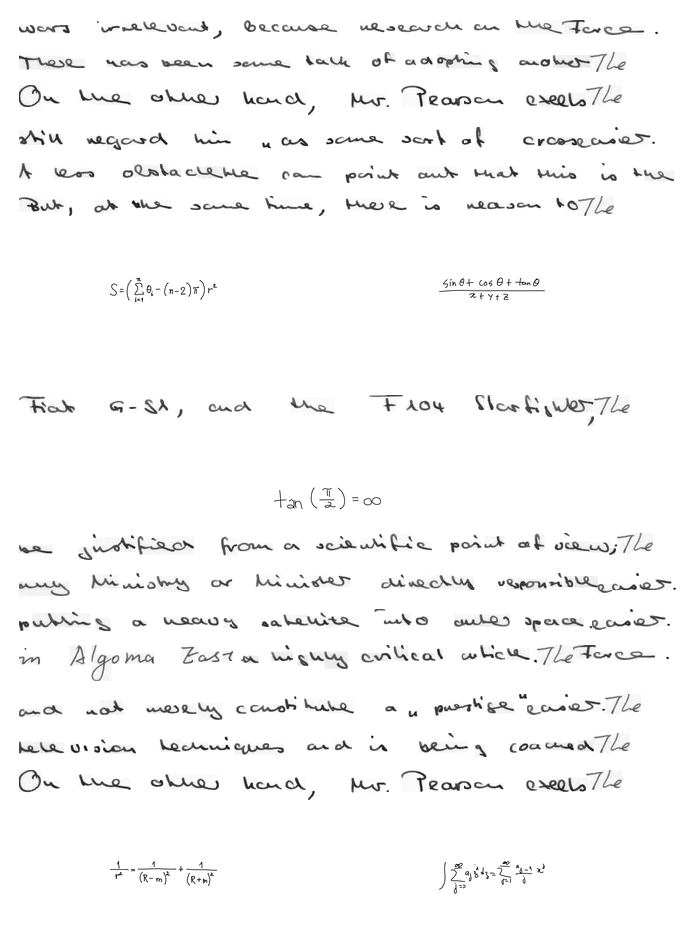 was irrelevant, because research on the Force.
There has been some talk of adopting another The
On the other hand, Mr. Pearson excels The
still regard him " as some sort of easier.
A less obstacle the can point out that this is the
But, at the same time, there is reason to The
S=(\sum_{i=1}^{n} θ_i-(n-2)π)r^2
\frac{sin θ + cos θ + tan θ}{x+y+z}
Fiat G-91, and the F104 Starfighter, The
tan(\frac{π}{2})=∞
be justified from a scientific point of view; The
any Ministry or Minister directly responsible easier.
putting a heavy satellite into outer space. easier.
in Algoma East a highly critical article. The Force.
and not merely constitute a " prestige " easier. The
television techniques and is being coached The
On the other hand, Mr. Pearson excels The
\frac{1}{r^2}=\frac{1}{(R-m)^2}+\frac{1}{(R+m)^2}